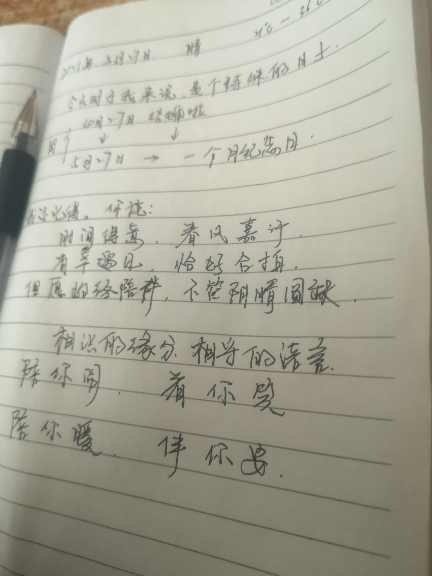 2021年 5月27日 晴 21℃-36℃
今天对于我来说,是个特殊的日子.
4月27日
5月27日 → 一个月纪念日.
我还记得。你说:
时间得意,春风嘉许.
有幸遇见 恰好合拍,
但愿 陪伴,不管阴晴圆缺.
相识的缘分,相守的语言.
陪你闹. 看你笑
陪你暖. 伴你安.